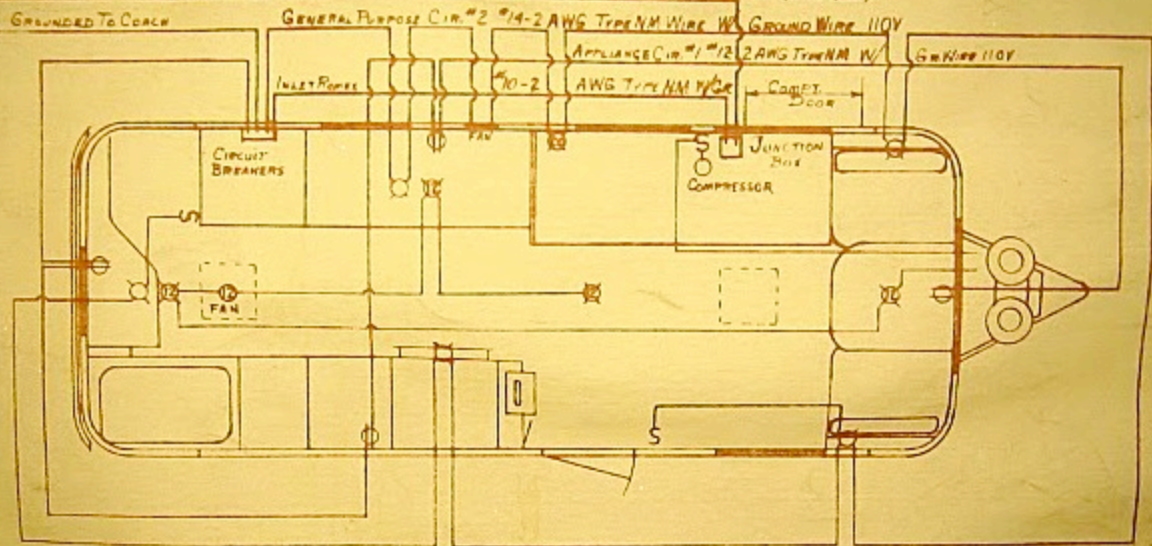 GROUNDED TO COACH
GENERAL PURPOSE CIR. #2 #14-2 AWG TYPE NM WIRE W/ GROUND WIRE 110V
APPLIANCE CIR. #1 #12-2 AWG TYPE NM W/ GR WIRE 110V
INLET #10-2 AWG TYPE NM W/GR
COMPT. DOOR
FAN
CIRCUIT
BREAKERS
JUNCTION
BOX
S
COMPRESSOR
12
S
12
12
12
12
FAN
S